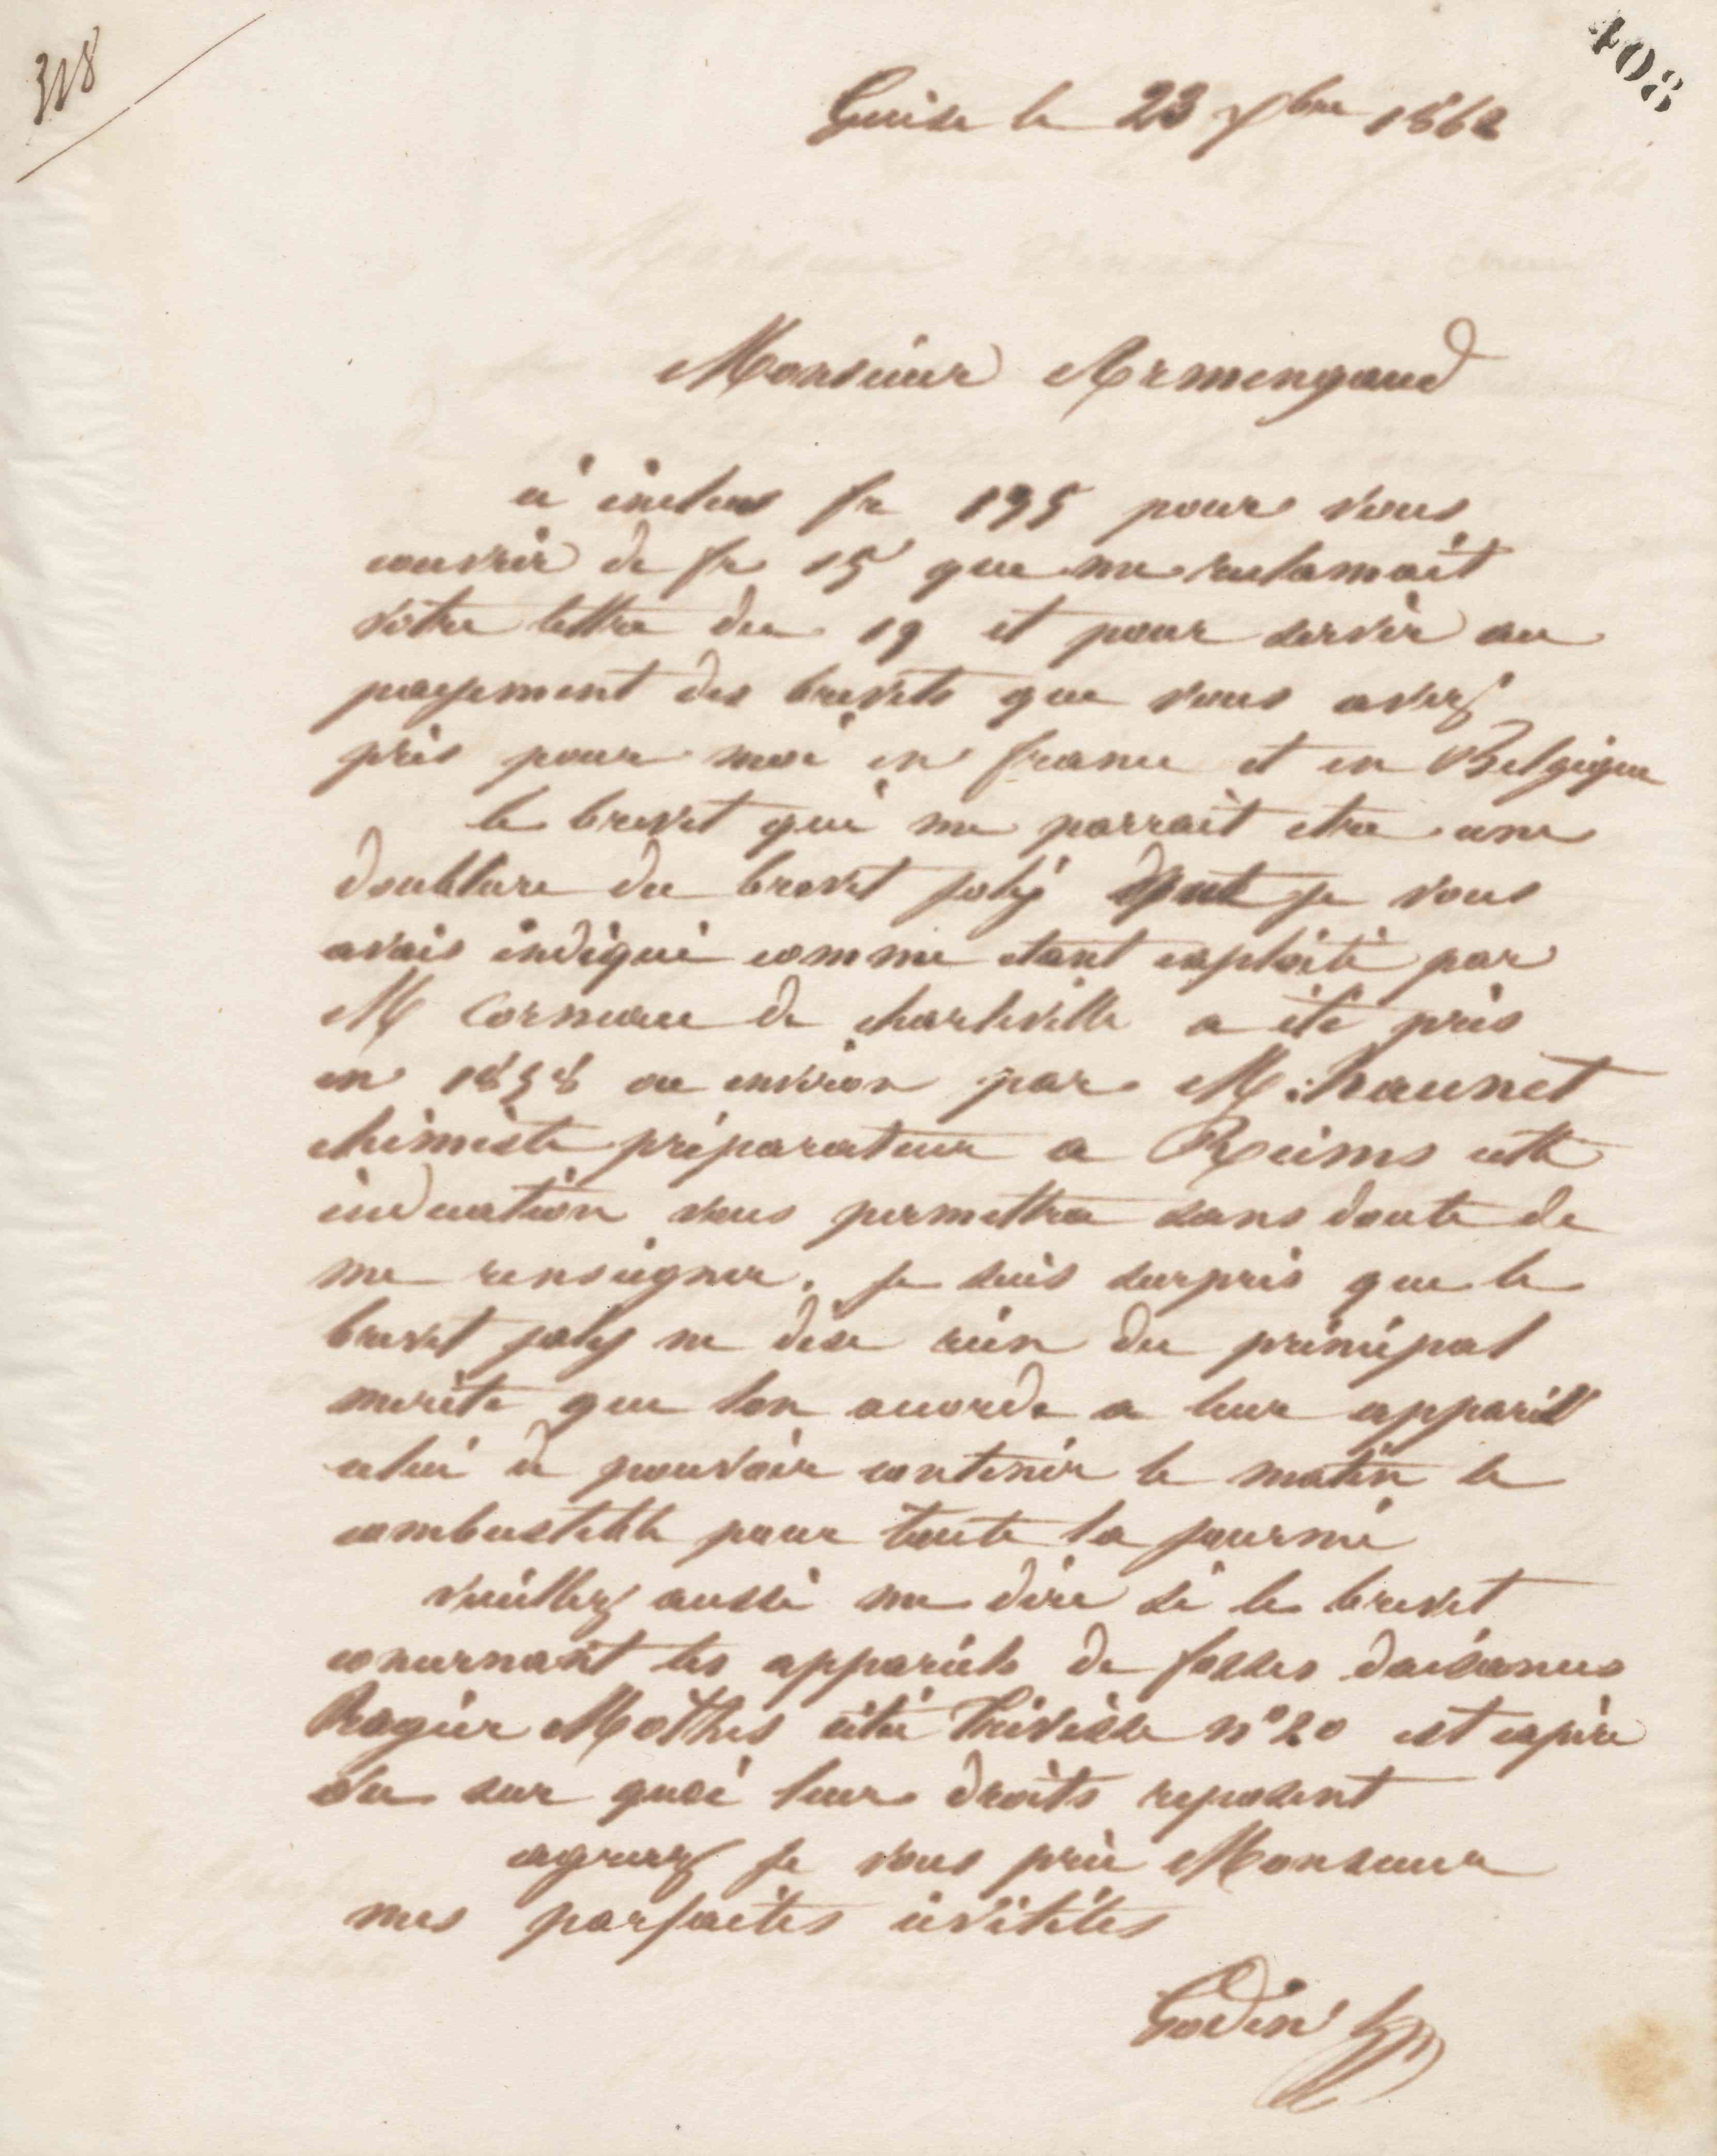 318
408
Guise le 23 Xbre 1862
Monsieur Armengaud
ci inclus fr 195 pour vous
couvrir de fr 15 que me reclamait
votre lettre du 19 et pour servir au
payement des brevets que vous avez
pris pour moi en france et en Belgique
le brevet qui me parrait etre une
doublure du brevet joly dont je vous
avais indiqué comme etant exploité par
M Corneau de charleville a été pris
en 1858 ou environ par M. haunet
chimiste préparateur a Reims cette
indication vous permettra sans doute de
me renseigner. je suis surpris que le
brevet joly ne dise rien du principal
mérite que lon accorde a leur appareil
celui de pouvoir contenir le matin le
combustible pour toute la journé
veuillez aussi me dire si le brevet
concernant les appareils de fosses daisances
Rogier Mothes cité Trévise n° 20 est expiré
ou sur quoi leurs droits reposent
agreez je vous prie Monsieur
mes parfaites civilités
Godin